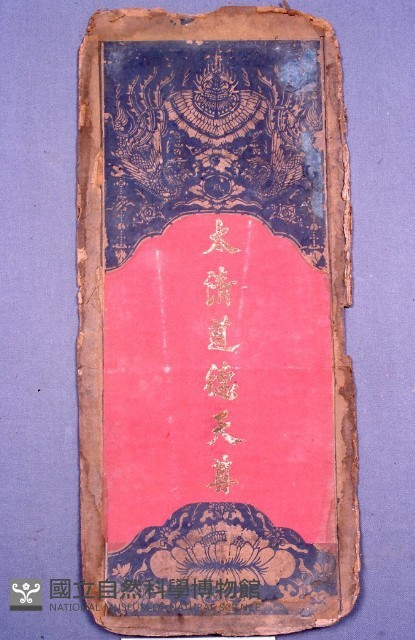 太清道德天尊
國立自然科學博物館
NATIONAL MUSEUM OF NATURAL SCIENCE